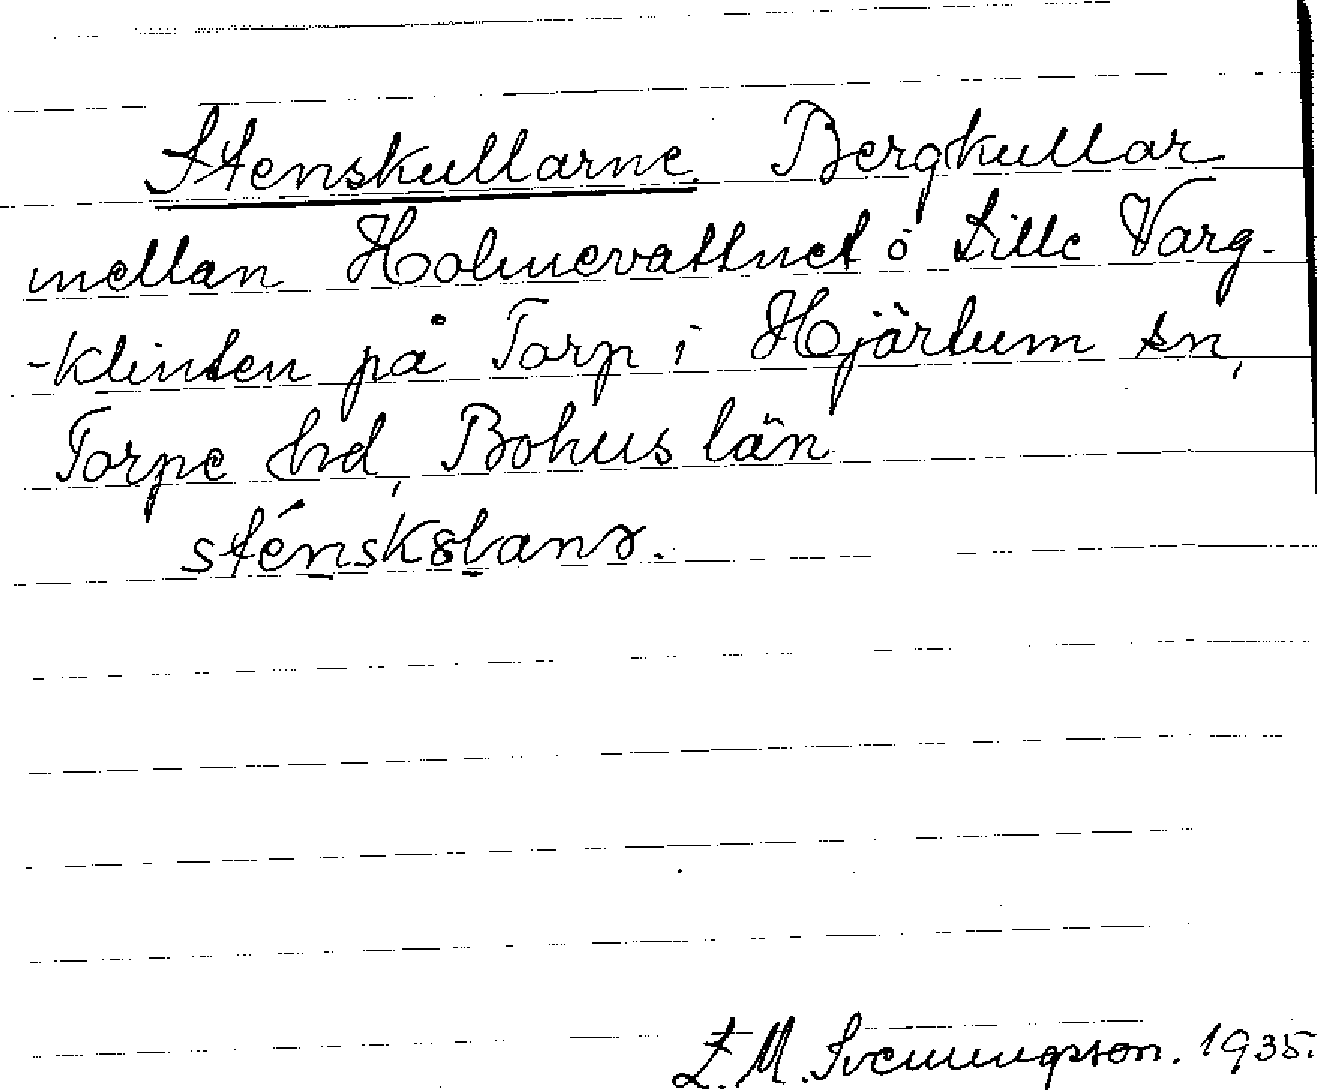 Stenskullarne. Bergkullar
mellan Holmevattnet o Lille Varg-
-klinten på Torp i Hjärtum sn,
Torpe hd, Bohus län
L. M. Svenungsson. 1935.